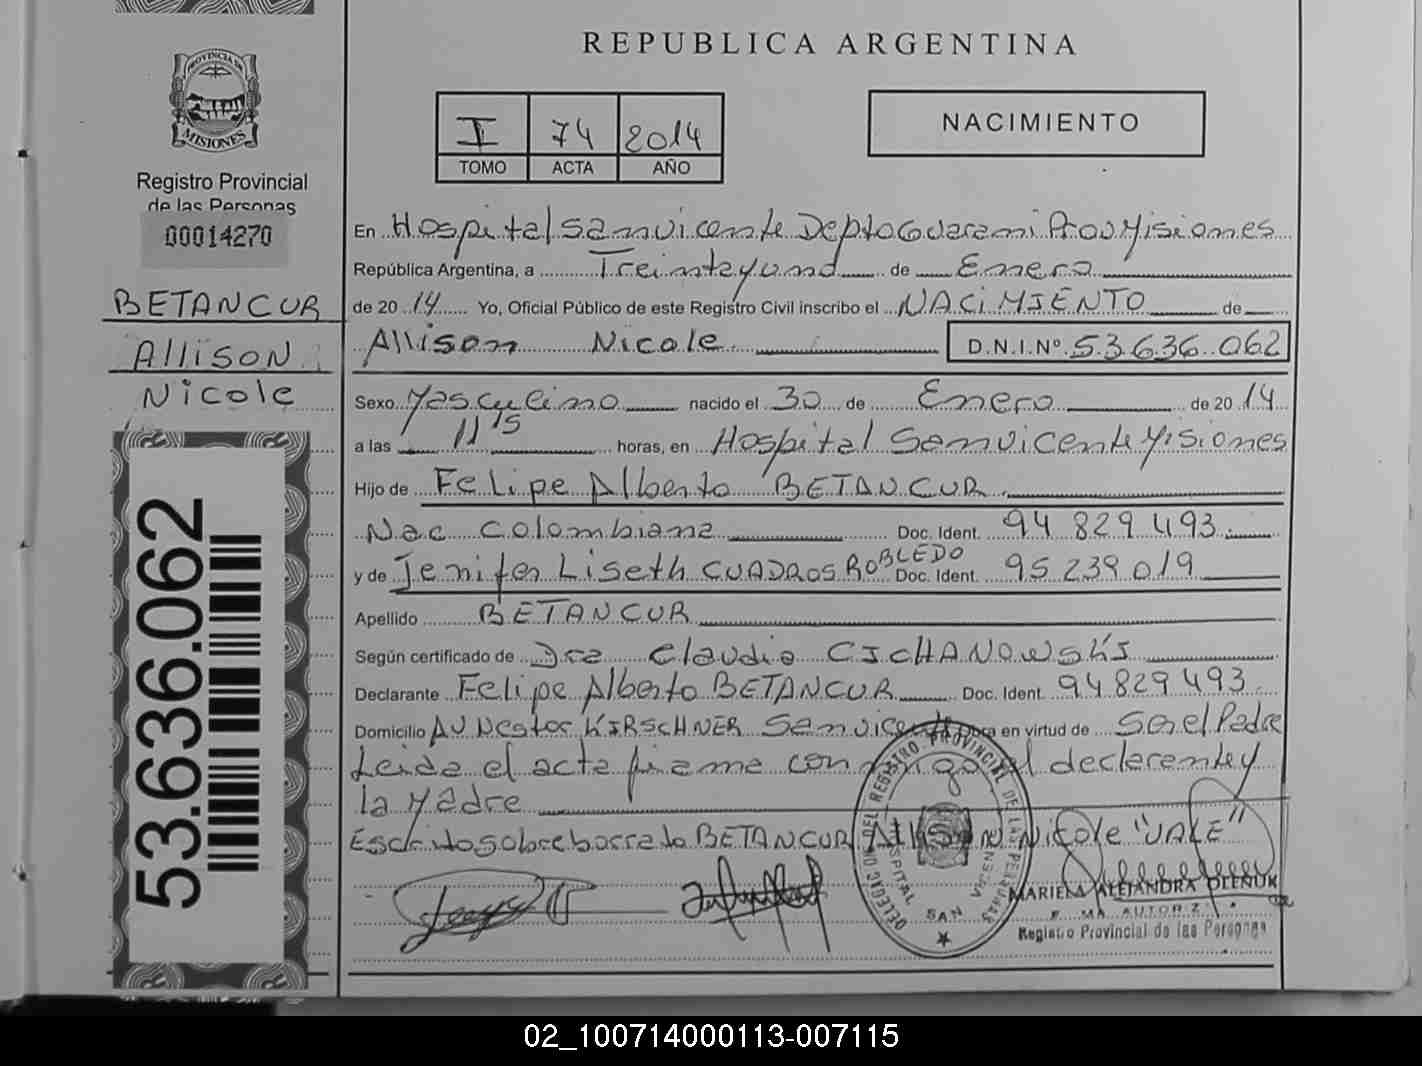 REPUBLICA ARGENTINA
PROVINCIA DE
MISIONES
Registro Provincial
de las Personas
00014270
BETANCUR
Allison
Nicole
53.636.062
I 74 2014
TOMO ACTA AÑO
NACIMIENTO
En Hospital San vicente Depto Guarani Prov Misiones
República Argentina, a Treinta y uno de Enero
de 2014 Yo, Oficial Público de este Registro Civil inscribo el NACiMIENTO de
Allison Nicole D.N.I.Nº 53.636.062
Sexo Masculino nacido el 30 de Enero de 2014
a las 11 15 horas, en Hospital San vicente Misiones
Hijo de Felipe Alberto BETANCUR
Nac Colombiana Doc. Ident. 94 829 493
y de Jenifer Liseth CUADROS ROBLEDO Doc. Ident. 95 239 019
Apellido BETANCUR
Según certificado de Dra Claudia CICHANOWSKI
Declarante Felipe Alberto BETANCUR Doc. Ident. 94 829 493
Domicilio AV Nestor KIRSCHNER San vicente obra en virtud de Ser el Padre
Leida el acta firma conmigo el declarante y
la Madre
Escrito sobre borrado BETANCUR Allison Nicole "VALE"
DELEGACION DEL REGISTRO PROVINCIAL DE LAS PERSONAS
HOSPITAL SAN VICENTE
MARIELA ALEJANDRA OLENUK
FIRMA AUTORIZ.
Registro Provincial de las Personas
02_100714000113-007115